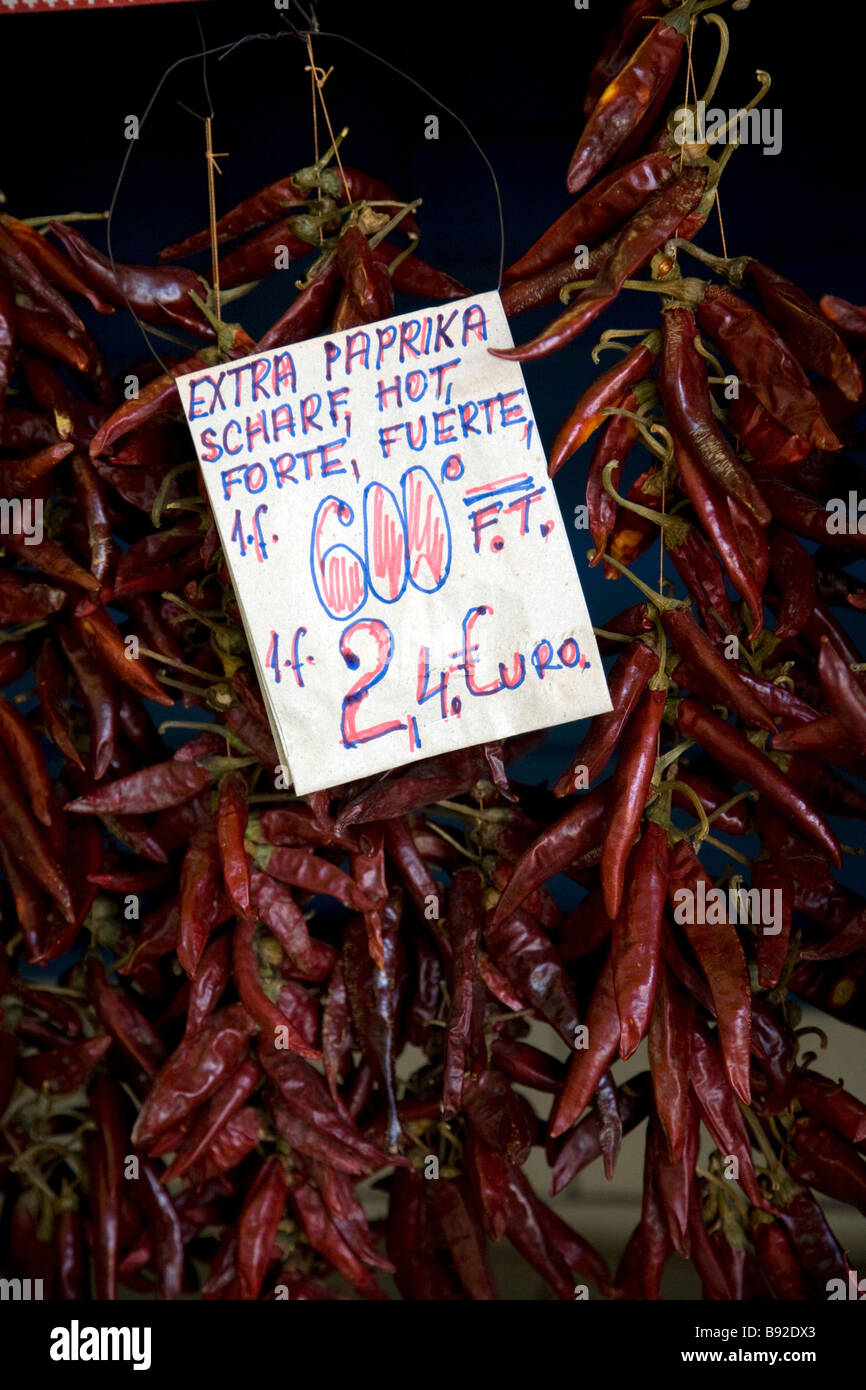 EXTRA PAPRIKA
SCHARF, HOT,
FORTE, FUERTE,
1.f. 600° F.T.
1.f. 2,4.€uro.
alamy
Image ID: B92DX3
www.alamy.com